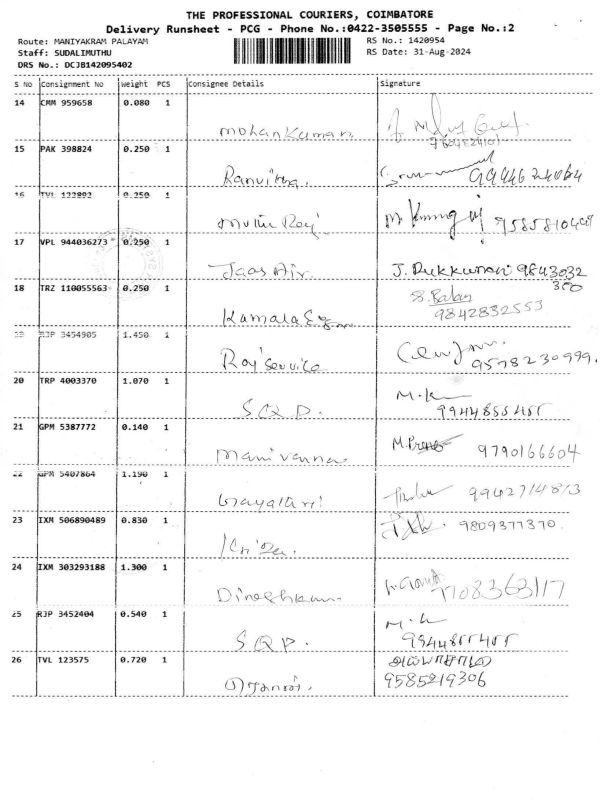 THE PROFESSIONAL COURIERS, COIMBATORE
Delivery Runsheet - PCG - Phone No.:0422-3505555 - Page No.:2
Route: MANIYAKRAM PALAYAM RS No.: 1420954
Staff: SUDALIMUTHU RS Date: 31-Aug-2024
DRS No.: DCJB142095402
S No Consignment No Weight PCS Consignee Details Signature
14 CMM 959658 0.080 1
Mohan Kumar
15 PAK 398824 0.250 1
16 TVL 122892 0.250 1
9585810449
17 VPL 944036273 0.250 1
Jaas Air. J. Rukkumani 9843032
380
18 TRZ 110055563 0.250 1 S. Balan
9842832553
Kamala
19 RJP 3454905 1.450 1
Roy Service 9578230999.
20 TRP 4003370 1.070 1 M.K
S Q D. 9944855455
21 GPM 5387772 0.140 1
Manivanna 9790166604
22 GPM 5407864 1.190 1
Gayathri 9942714813
23 IXM 506890489 0.830 1 9809377370.
24 IXM 303293188 1.300 1
Dineshkum 7708363117
25 RJP 3452404 0.540 1 M.K
S Q D. 9944855455
26 TVL 123575 0.720 1 அய்யாசாமி
9585219306